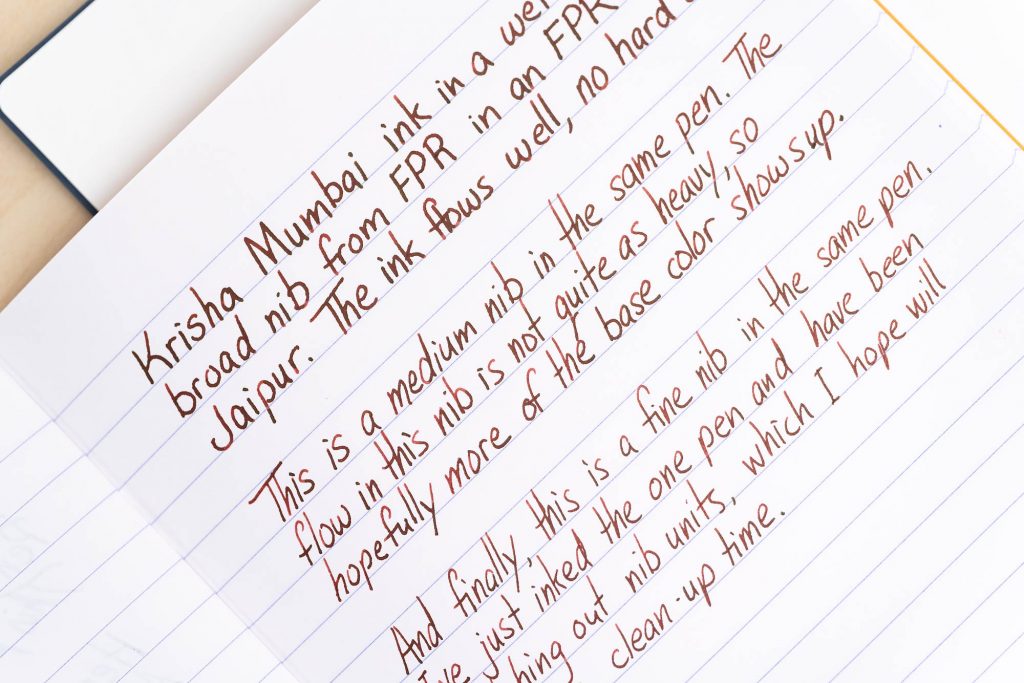 Krisha Mumbai ink in a
broad nib from FPR in an FPR
Jaipur. The ink flows well, no hard
This is a medium nib in the same pen. The
flow in this nib is not quite as heavy, so
hopefully more of the base color shows up.
And finally, this is a fine nib in the same pen.
I've just inked the one pen and have been
hing out nib units, which I hope will
clean-up time.